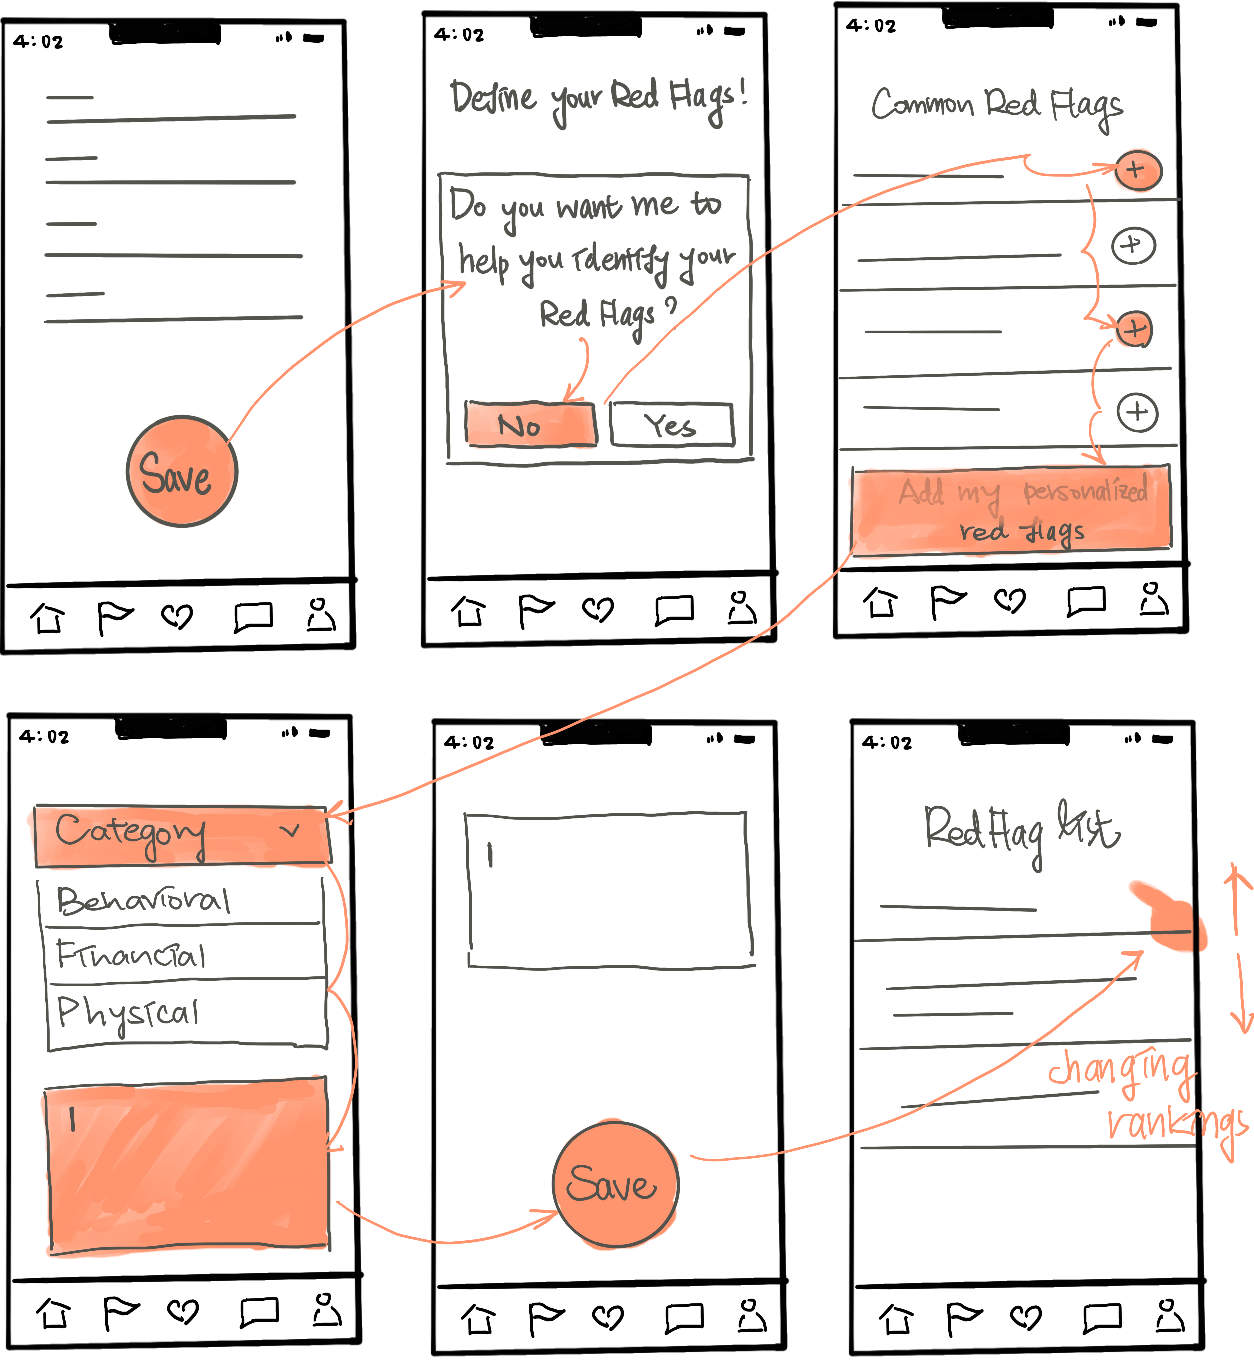 4:02
Save
4:02
Define your Red Flags!
Do you want me to
help you identify your
Red Flags?
No
Yes
4:02
Common Red Flags
+
+
+
+
Add my personalized
red flags
4:02
Category
Behavioral
Financial
Physical
4:02
Save
4:02
Red Flag list
changing
rankings